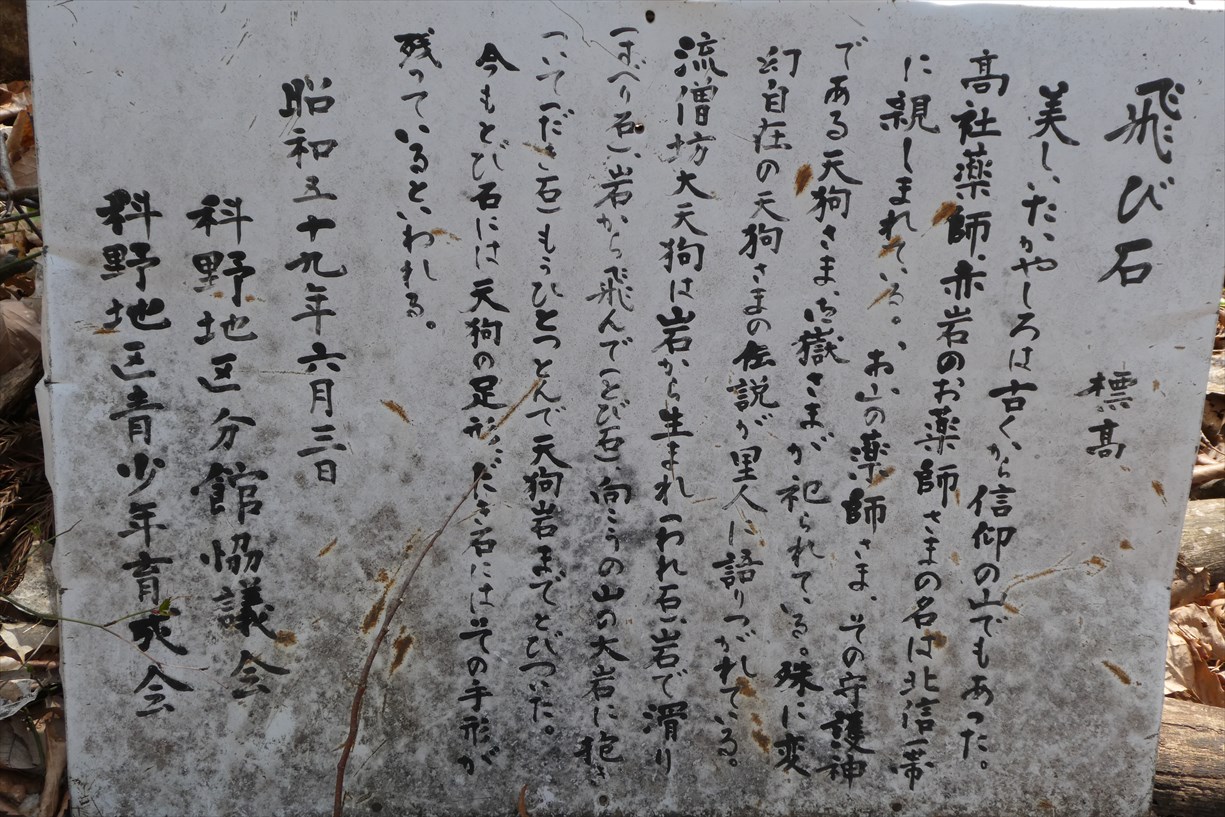 飛び石 標高
美しいたかやしろは古くから信仰の山でもあった。
高社薬師、赤岩のお薬師さまの名は北信一帯
に親しまれている。お山の薬師さま、その守護神
である天狗さま、御嶽さまが祀られている。殊に変
幻自在の天狗さまの伝説が里人に語りつがれている。
流僧坊大天狗は岩から生まれ「われ石」、岩で滑り
「すべり石」、岩から飛んで「とび石」、向こうの山の大岩に抱き
ついて「だき石」もうひとつとんで天狗岩までとびついた。
今もとび石には天狗の足形、だき石にはその手形が
残っているといわれる。
昭和五十九年六月三日
科野地区分館協議会
科野地区青少年育成会